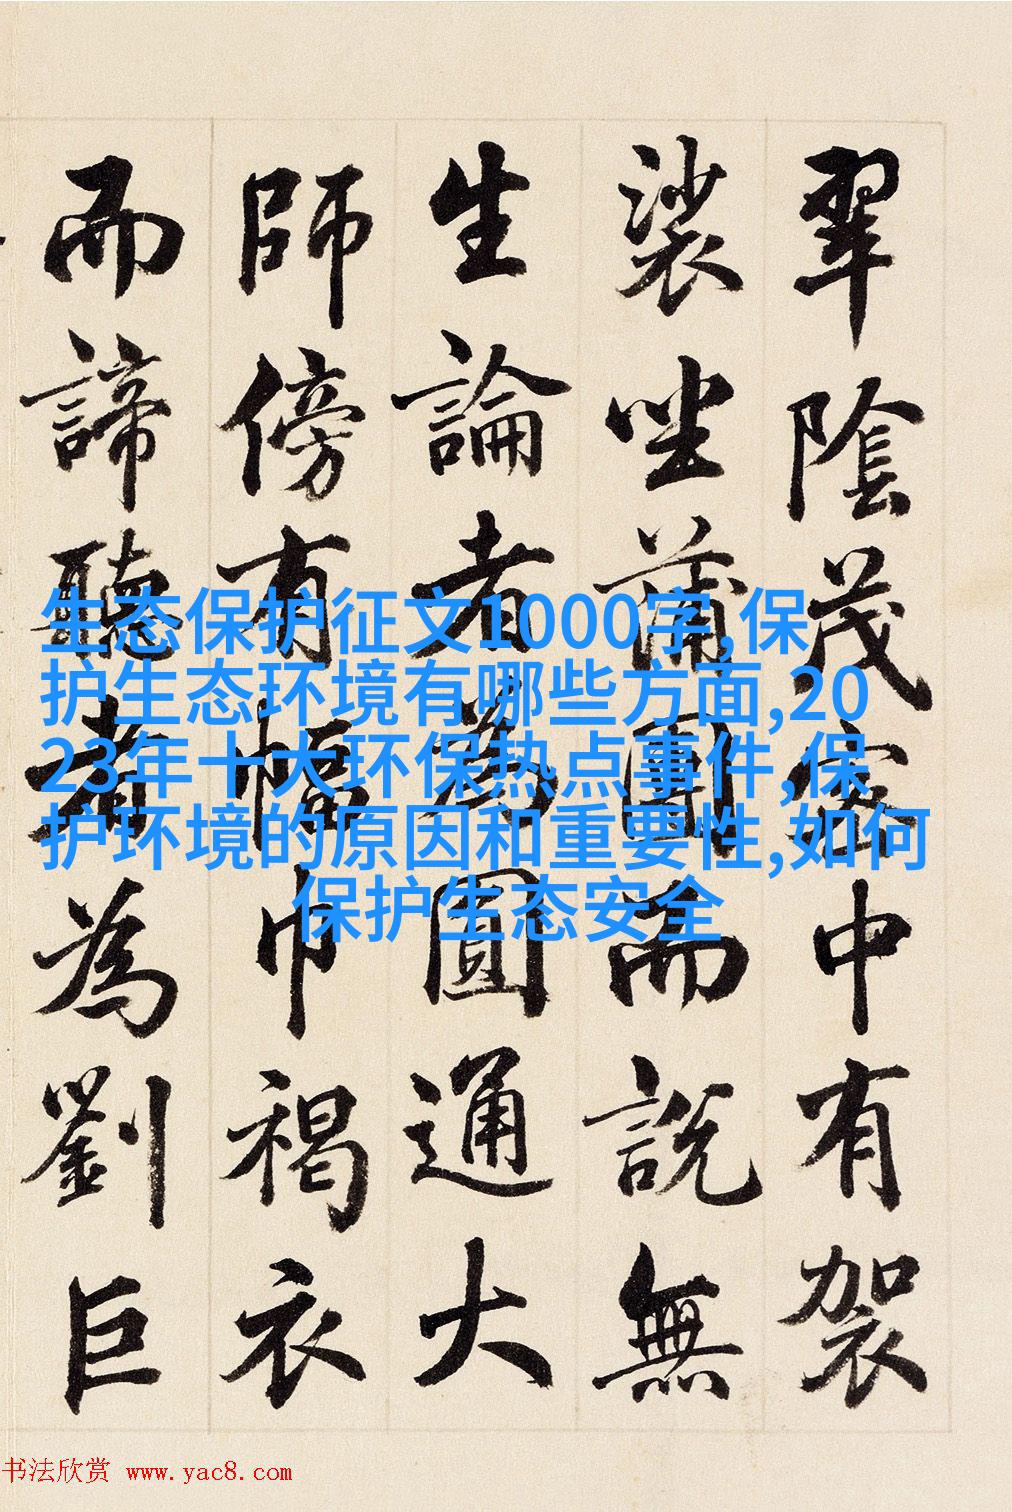 翠陰茂密中有袈
裟坐蒲團而說無
生論者為圓通大
師傍有幅巾褐衣
而諦聽者為劉巨
生态保护征文1000字,保
护生态环境有哪些方面,20
23年十大环保热点事件,保
护环境的原因和重要性,如何
保护生态安全
书法欣赏 www.yac8.com